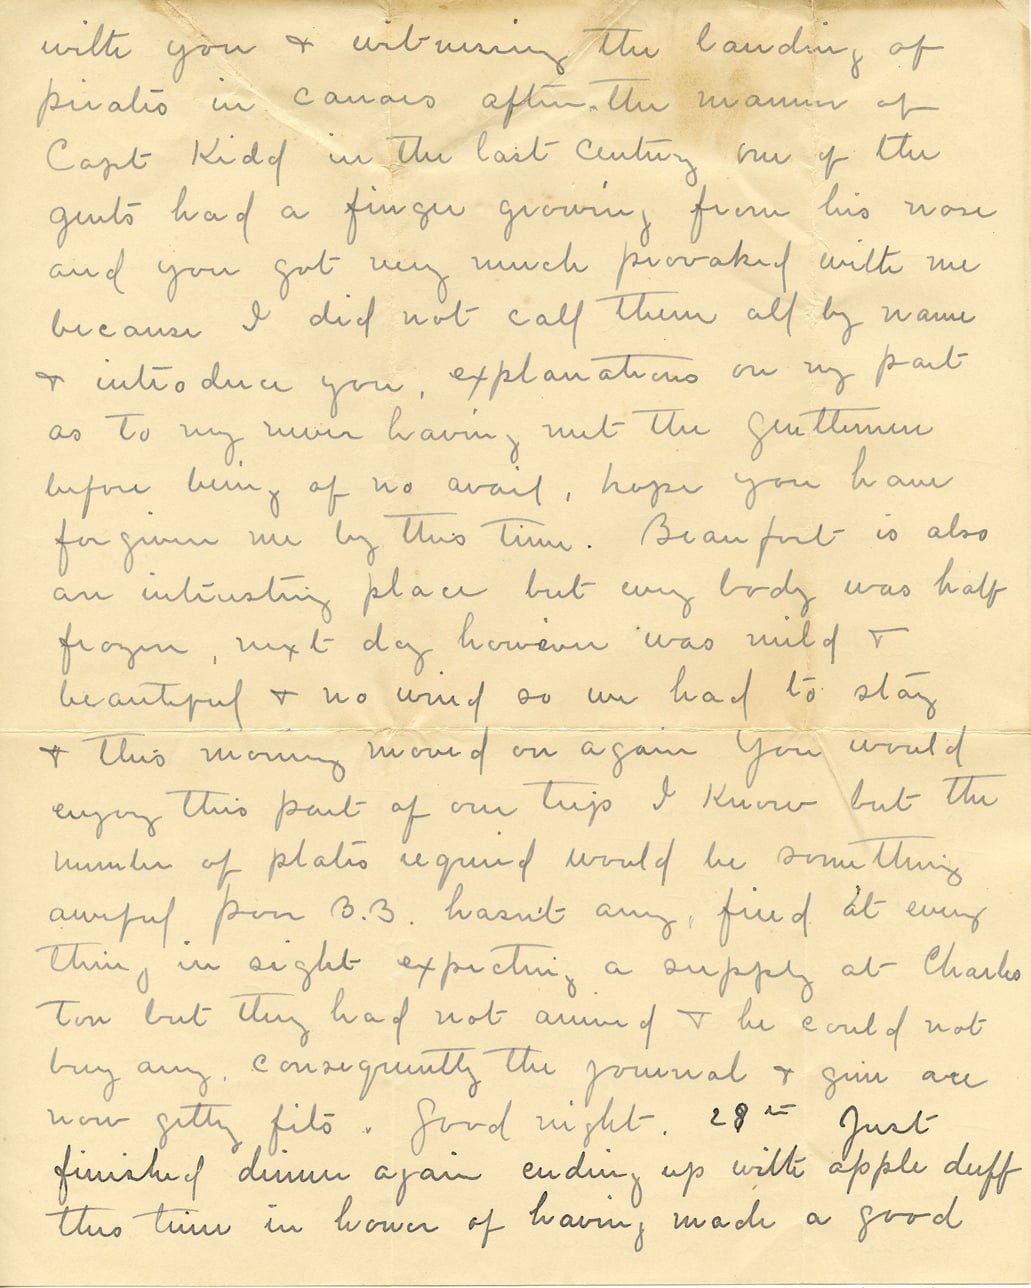 with you & witnessing the landing of
pirates in canoes after the manner of
Capt Kidd in the last century one of the
gents had a finger growing from his nose
and you got very much provoked with me
because I did not call them all by name
& introduce you, explanations on my part
as to my never having met the gentlemen
before being of no avail, hope you have
forgiven me by this time. Beaufort is also
an interesting place but every body was half
frozen, next day however was mild &
beautiful & no wind so we had to stay
& this morning moved on again You would
enjoy this part of our trip I know but the
number of plates required would be something
awful poor B.B. hasn't any, fired at every
thing in sight expecting a supply at Charles
ton but they had not arrived & he could not
buy any, consequently the journal & gun are
now getting fits. Good night. 28th Just
finished dinner again ending up with apple duff
this time in honor of having made a good